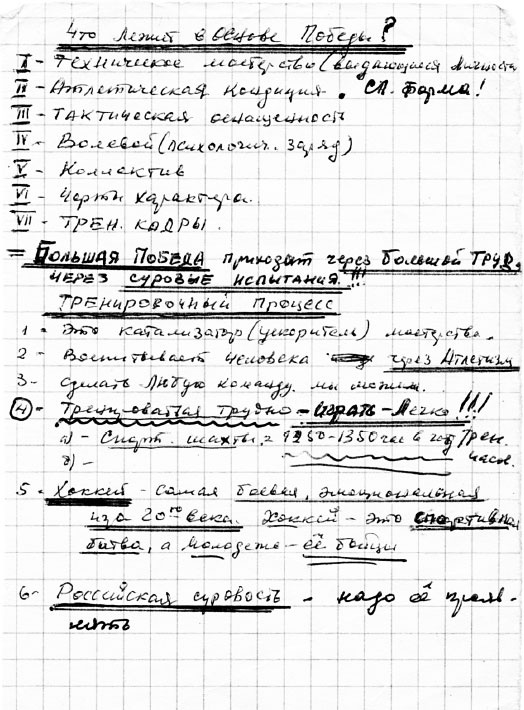 Что лежит в основе Победы?
I - Техническое мастерство (выдающиеся личности
II - Атлетическая кондиция. Сп. форма!
III - Тактическая оснащенность
IV - Волевой (психологич. заряд)
V - Коллектив
VI - Черты характера.
VII - ТРЕН. КАДРЫ.
= БОЛЬШАЯ ПОБЕДА приходит через большой ТРУД,
ЧЕРЕЗ СУРОВЫЕ ИСПЫТАНИЯ!!!
ТРЕНИРОВОЧНЫЙ ПРОЦЕСС
1 - Это катализатор (ускоритель) мастерства.
2 - Воспитывает человека через Атлетизм
3 - Сделать любую команду мы можем.
4 - Тренироваться трудно - играть - легко!!!
а) - Спорт. шахты = 1350 час в год Трен.
б) - часов.
5 - Хоккей - самая боевая, эмоциональная
игра 20го века. Хоккей - это спортивная
битва, а молодежь - её бойцы
6 - Российская суровость - надо её прояв-
лять